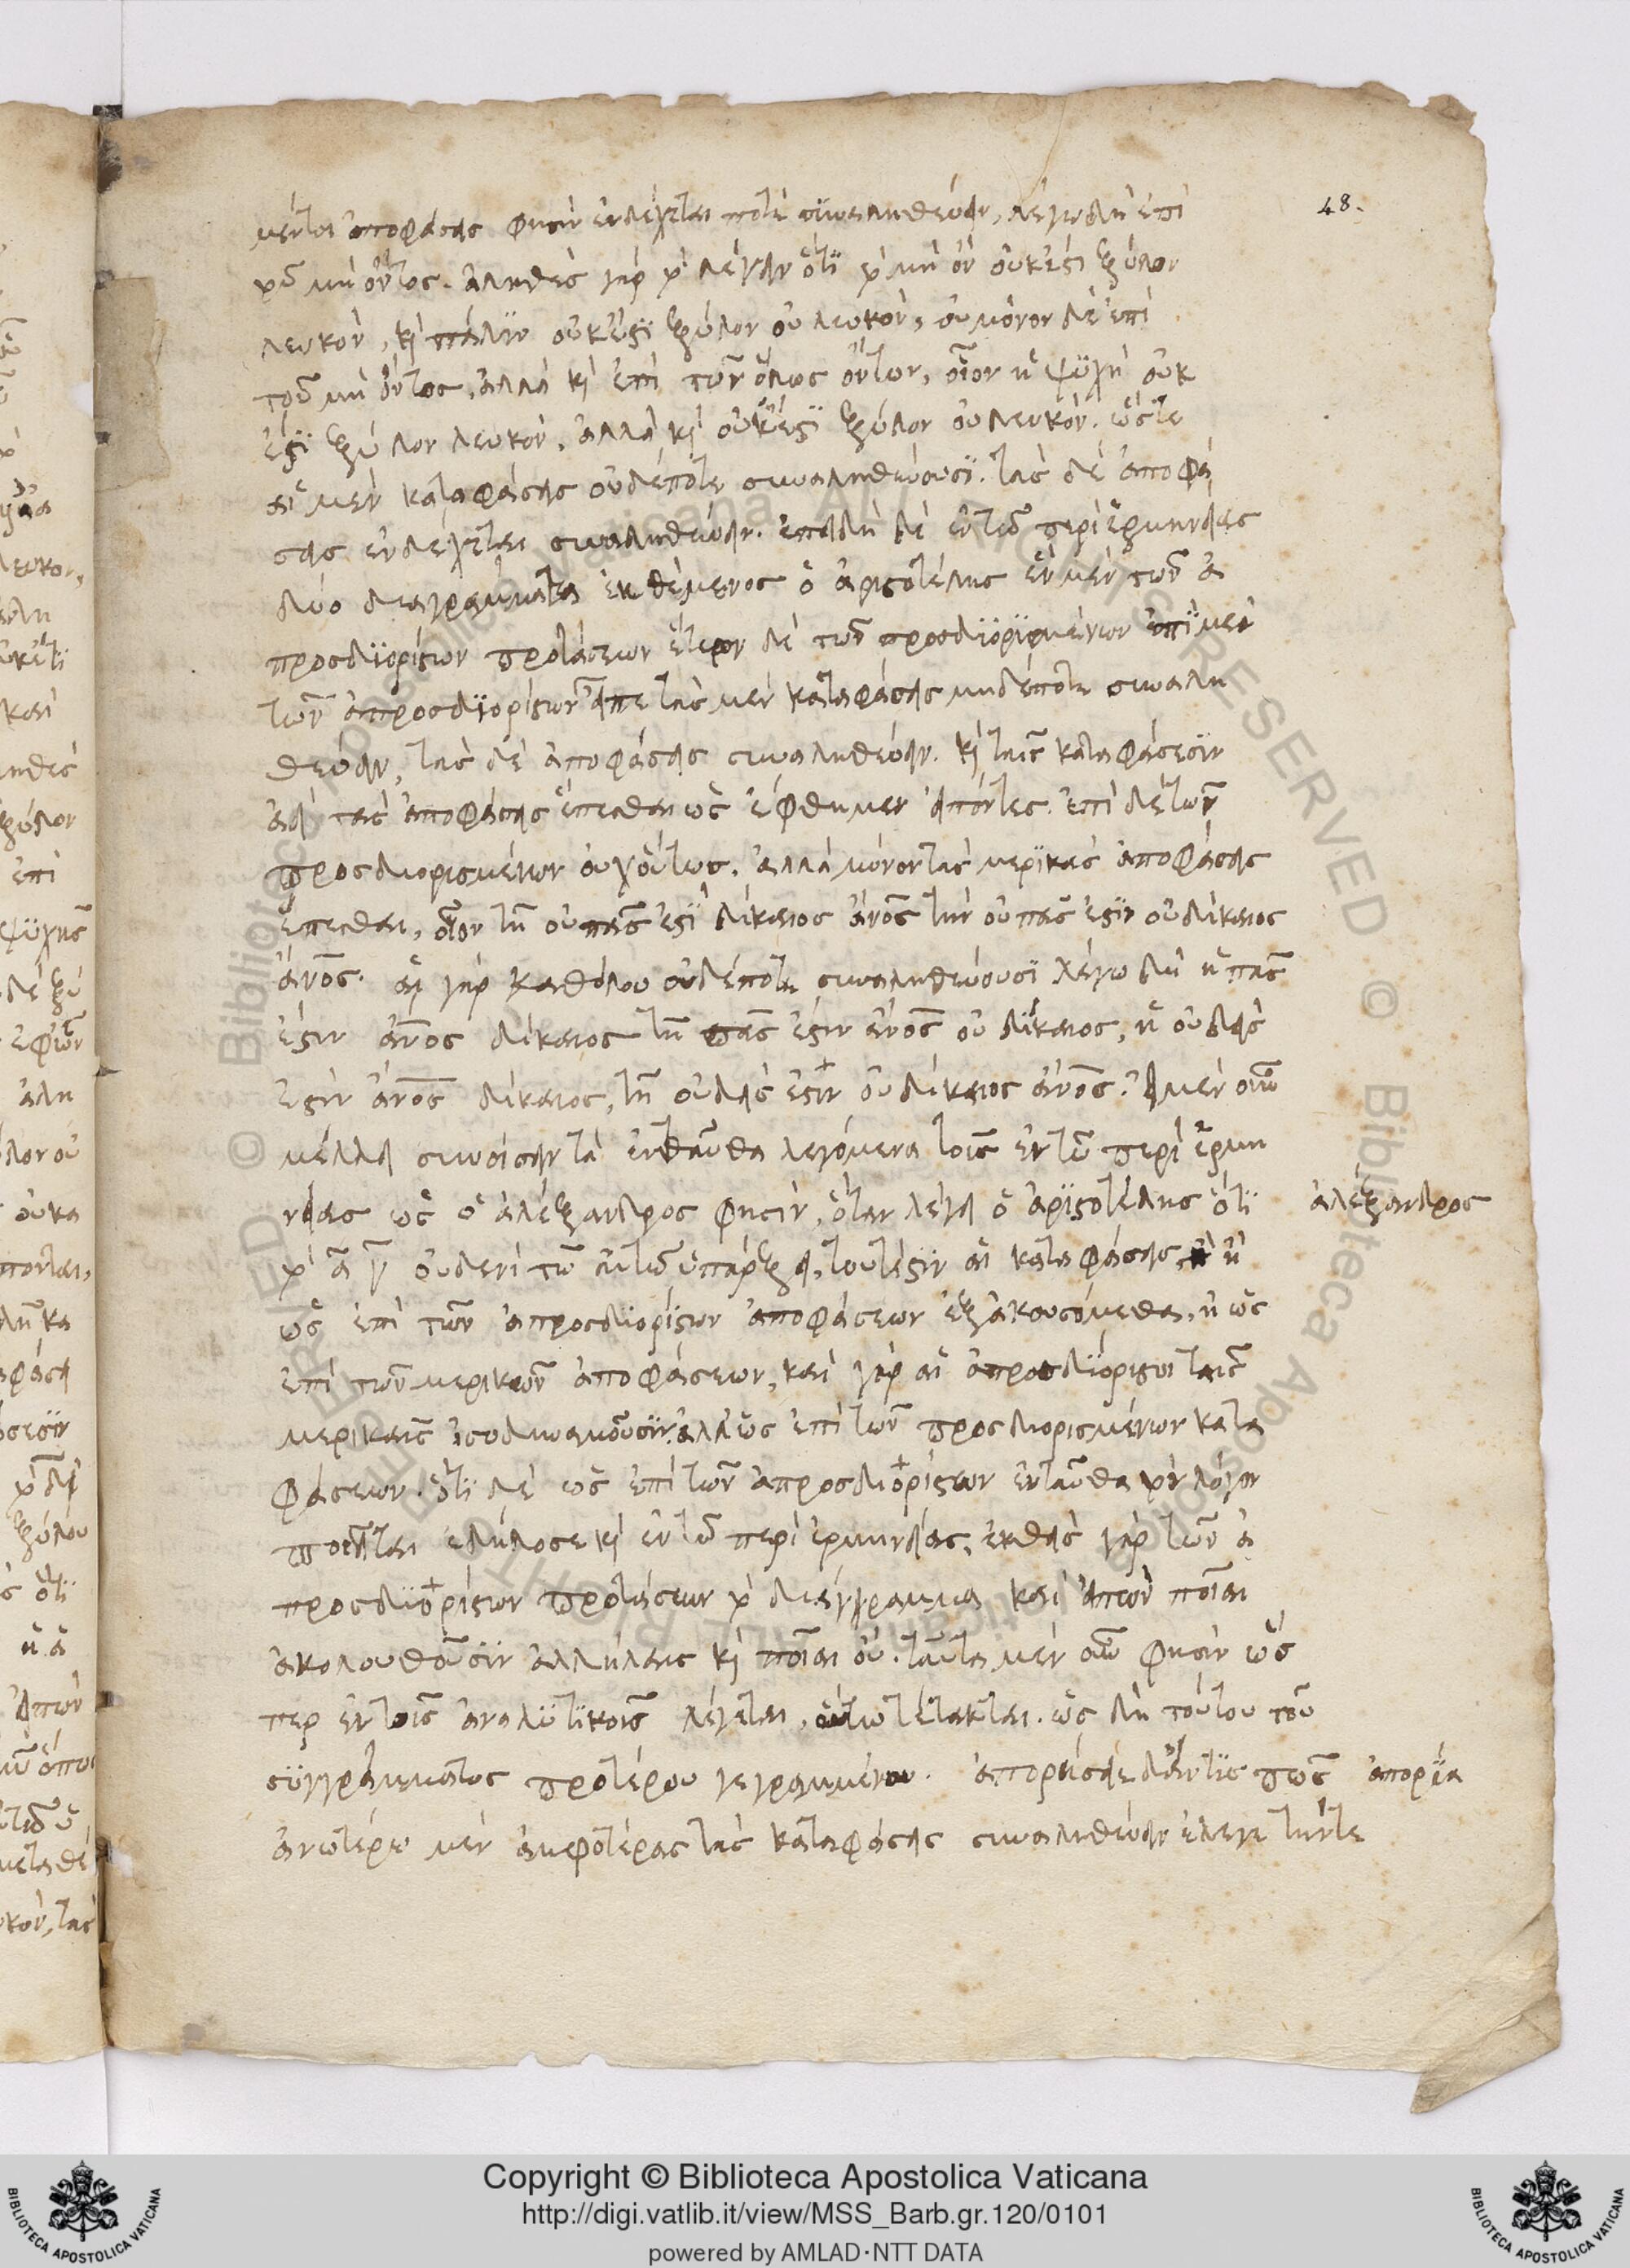 48.
μέντοι ἀποφάσεις φησὶν ἐνδέχεται ποτὲ συναληθεύειν, λέγω δὴ ἐπὶ
τοῦ μὴ ὄντος. ἀληθὲς γὰρ τὸ λέγειν ὅτι τὸ μὴ ὂν οὐκ ἔστι ξύλον
λευκόν, κὶ πάλιν οὐκ ἔστι ξύλον οὐ λευκόν, οὐ μόνον δὲ ἐπὶ
τοῦ μὴ ὄντος, ἀλλὰ κὶ ἐπὶ τῶν ὅλως ὄντων, οἷον ἡ ψυχὴ οὐκ
ἔστι ξύλον λευκόν, ἀλλὰ κὶ οὐκ ἔστι ξύλον οὐ λευκόν. ὥστε
αἱ μὲν καταφάσεις οὐδέποτε συναληθεύουσι. τὰς δὲ ἀποφά
σεις ἐνδέχεται συναληθεύειν. ἐπειδὴ δὲ ἐν τῶ περὶ ἑρμηνείας
δύο διαγράμματα ἐκθέμενος ὁ ἀριστοτέλης ἓν μὲν τῶν ἀ
προσδιορίστων προτάσεων ἕτερον δὲ τῶν προσδιορισμένων ἐπὶ μὲν
τῶν ἀπροσδιορίστων εἶπε τὰς μὲν καταφάσεις μηδέποτε συναλη
θεύειν, τὰς δὲ ἀποφάσεις συναληθεύειν. κὶ ταῖς καταφάσεσιν
ἀεὶ τὰς ἀποφάσεις ἕπεσθαι ὡς ἔφθημεν εἰπόντες. ἐπὶ δὲ τῶν
προσδιορισμένων οὐχ οὕτως. ἀλλὰ μόνον τὰς μερικὰς ἀποφάσεις
ἕπεσθαι, οἷον τῆ οὐ πᾶς ἐστὶ δίκαιος ἄνος τὴν οὐ πᾶς ἐστὶν οὐ δίκαιος
ἄνος. αἱ γὰρ καθόλου οὐδέποτε συναληθεύουσι λέγω δὴ ἡ πᾶς
ἐστὶν ἄνος δίκαιος τῆ πᾶς ἐστὶν ἄνος οὐ δίκαιος, ἢ οὐδεὶς
ἐστὶν ἄνος δίκαιος, τῆ οὐδεὶς ἐστὶν οὐ δίκαιος ἄνος. εἰ μὲν οὖν
μέλλει συνοίσειν τὰ ἐνταῦθα λεγόμενα τοῖς ἐν τῶ περὶ ἑρμη
νείας ὡς ὁ ἀλέξανδρος φησίν, ὅταν λέγη ὁ ἀριστοτέλης ὅτι
ἀλέξανδρος
τὸ α γ οὐδενὶ τῶ αὐτῶ ὑπάρξει, τουτέστιν αἱ καταφάσεις, ἢ
ὡς ἐπὶ τῶν ἀπροσδιορίστων ἀποφάσεων ἐξακουσόμεθα, ἢ ὡς
ἐπὶ τῶν μερικῶν ἀποφάσεων, καὶ γὰρ αἱ ἀπροσδιόριστοι ταῖς
μερικαῖς ἰσοδυναμοῦσιν. ἀλλ' ὡς ἐπὶ τῶν προσδιορισμένων κατα
φάσεων. ὅτι δὲ ὡς ἐπὶ τῶν ἀπροσδιορίστων ἐνταῦθα τὸν λόγον
ποιεῖται ἐδήλωσε κὶ ἐν τῶ περὶ ἑρμηνείας, ἐκθεὶς γὰρ τῶν ἀ
προσδιορίστων προτάσεων τὸ διάγραμμα καὶ εἰπὼν ποῖαι
ἀκολουθοῦσιν ἀλλήλαις κὶ ποῖαι οὔ. ταῦτα μὲν οὖν φησιν ὥς
περ ἐν τοῖς ἀναλυτικοῖς λέγεται, οὕτω τέτακται. ὡς δὴ τούτου τοῦ
συγγράμματος προτέρου γεγραμμένου. ἀπορήσειε δ' ἄν τις πῶς
ἀπορία
ἀνωτέρω μὲν ἀμφοτέρας τὰς καταφάσεις συναληθεύειν ἔλεγε τήντε
Copyright © Biblioteca Apostolica Vaticana
http://digi.vatlib.it/view/MSS_Barb.gr.120/0101
powered by AMLAD·NTT DATA